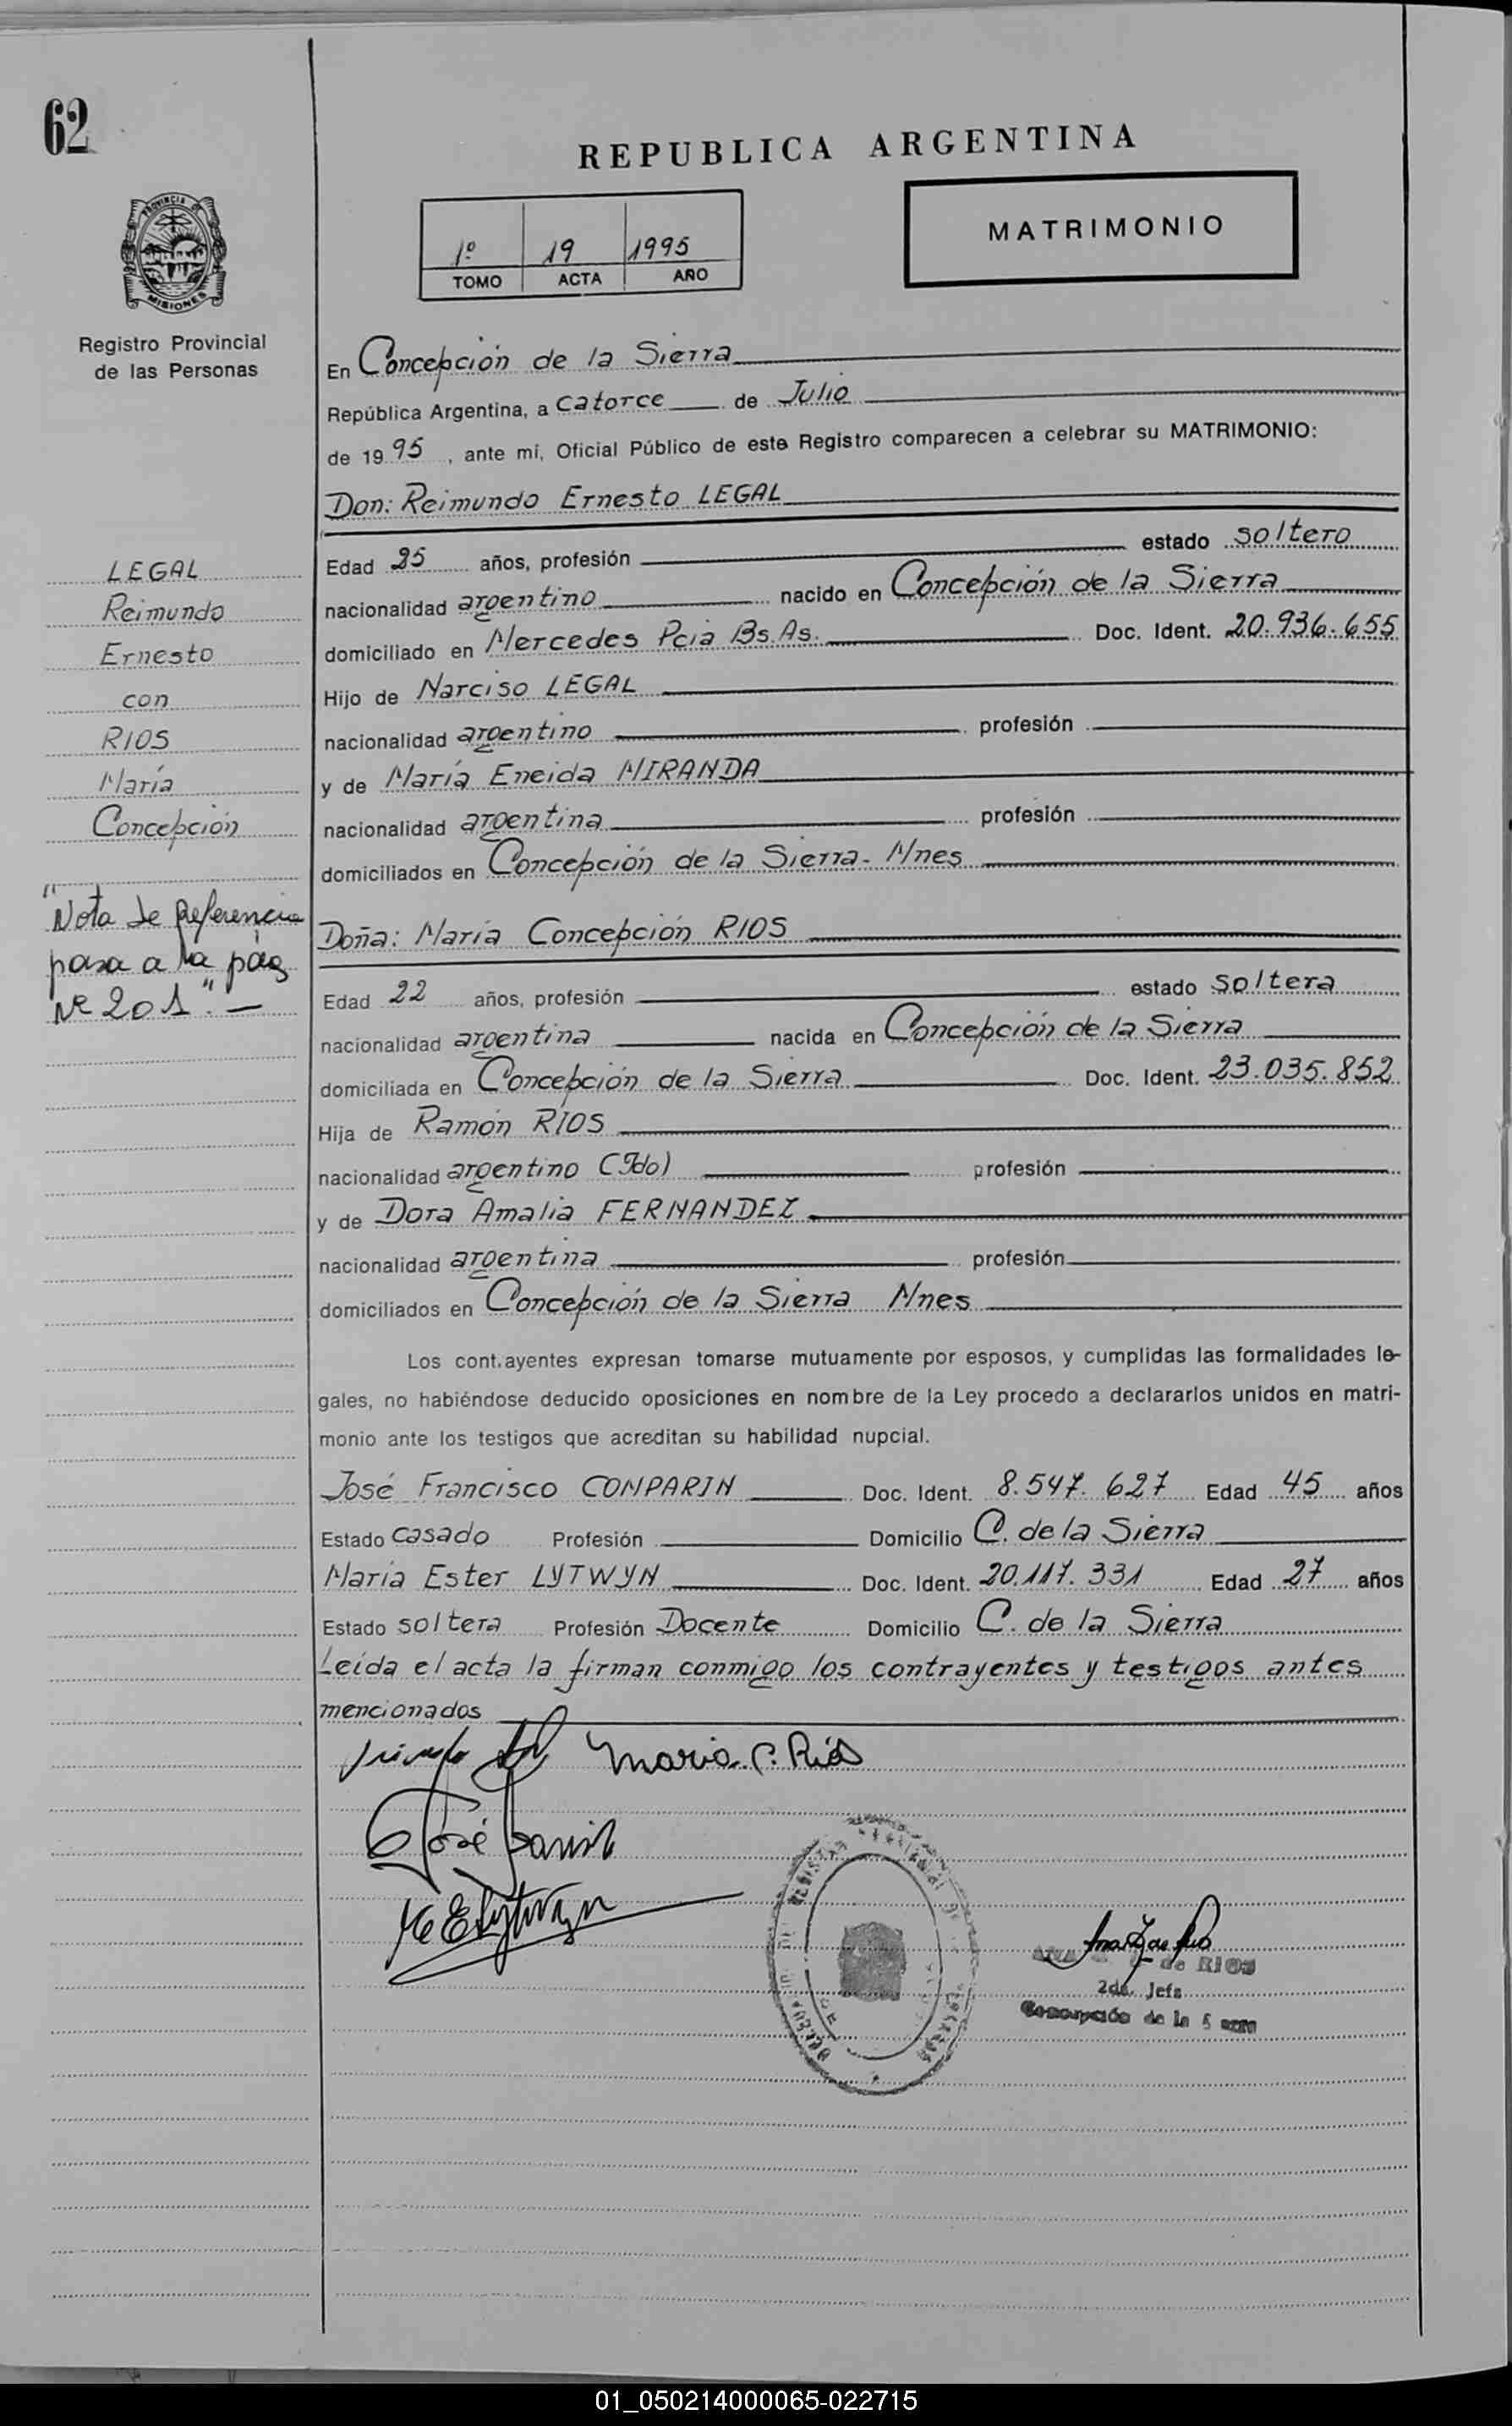 62
REPUBLICA ARGENTINA
MATRIMONIO
1º 19 1995
TOMO ACTA AÑO
PROVINCIA DE
MISIONES
Registro Provincial
de las Personas
En Concepción de la Sierra
República Argentina, a catorce de Julio
de 19 95, ante mí, Oficial Público de este Registro comparecen a celebrar su MATRIMONIO:
Don: Reimundo Ernesto LEGAL
Edad 25 años, profesión estado soltero
nacionalidad argentino nacido en Concepción de la Sierra
domiciliado en Mercedes Pcia Bs.As. Doc. Ident. 20.936.655
Hijo de Narciso LEGAL
nacionalidad argentino profesión
y de María Eneida MIRANDA
nacionalidad argentina profesión
domiciliados en Concepción de la Sierra- Mnes
LEGAL
Reimundo
Ernesto
con
RIOS
María
Concepción
"Nota de Referencia
pasa a la pág
Nº 201".-
Doña: María Concepción RIOS
Edad 22 años, profesión estado soltera
nacionalidad argentina nacida en Concepción de la Sierra
domiciliada en Concepción de la Sierra Doc. Ident. 23.035.852
Hija de Ramón RIOS
nacionalidad argentino (Fdo) profesión
y de Dora Amalia FERNANDEZ
nacionalidad argentina profesión
domiciliados en Concepción de la Sierra Mnes
Los cont.ayentes expresan tomarse mutuamente por esposos, y cumplidas las formalidades le-
gales, no habiéndose deducido oposiciones en nombre de la Ley procedo a declararlos unidos en matri-
monio ante los testigos que acreditan su habilidad nupcial.
José Francisco COMPARIN Doc. Ident. 8.547.627 Edad 45 años
Estado casado Profesión Domicilio C. de la Sierra
María Ester LYTWYN Doc. Ident. 20.117.331 Edad 27 años
Estado soltera Profesión Docente Domicilio C. de la Sierra
Leída el acta la firman conmigo los contrayentes y testigos antes
mencionados
Maria C. Rios
José
de RIOS
2da. Jefa
Concepción de la S
01_050214000065-022715